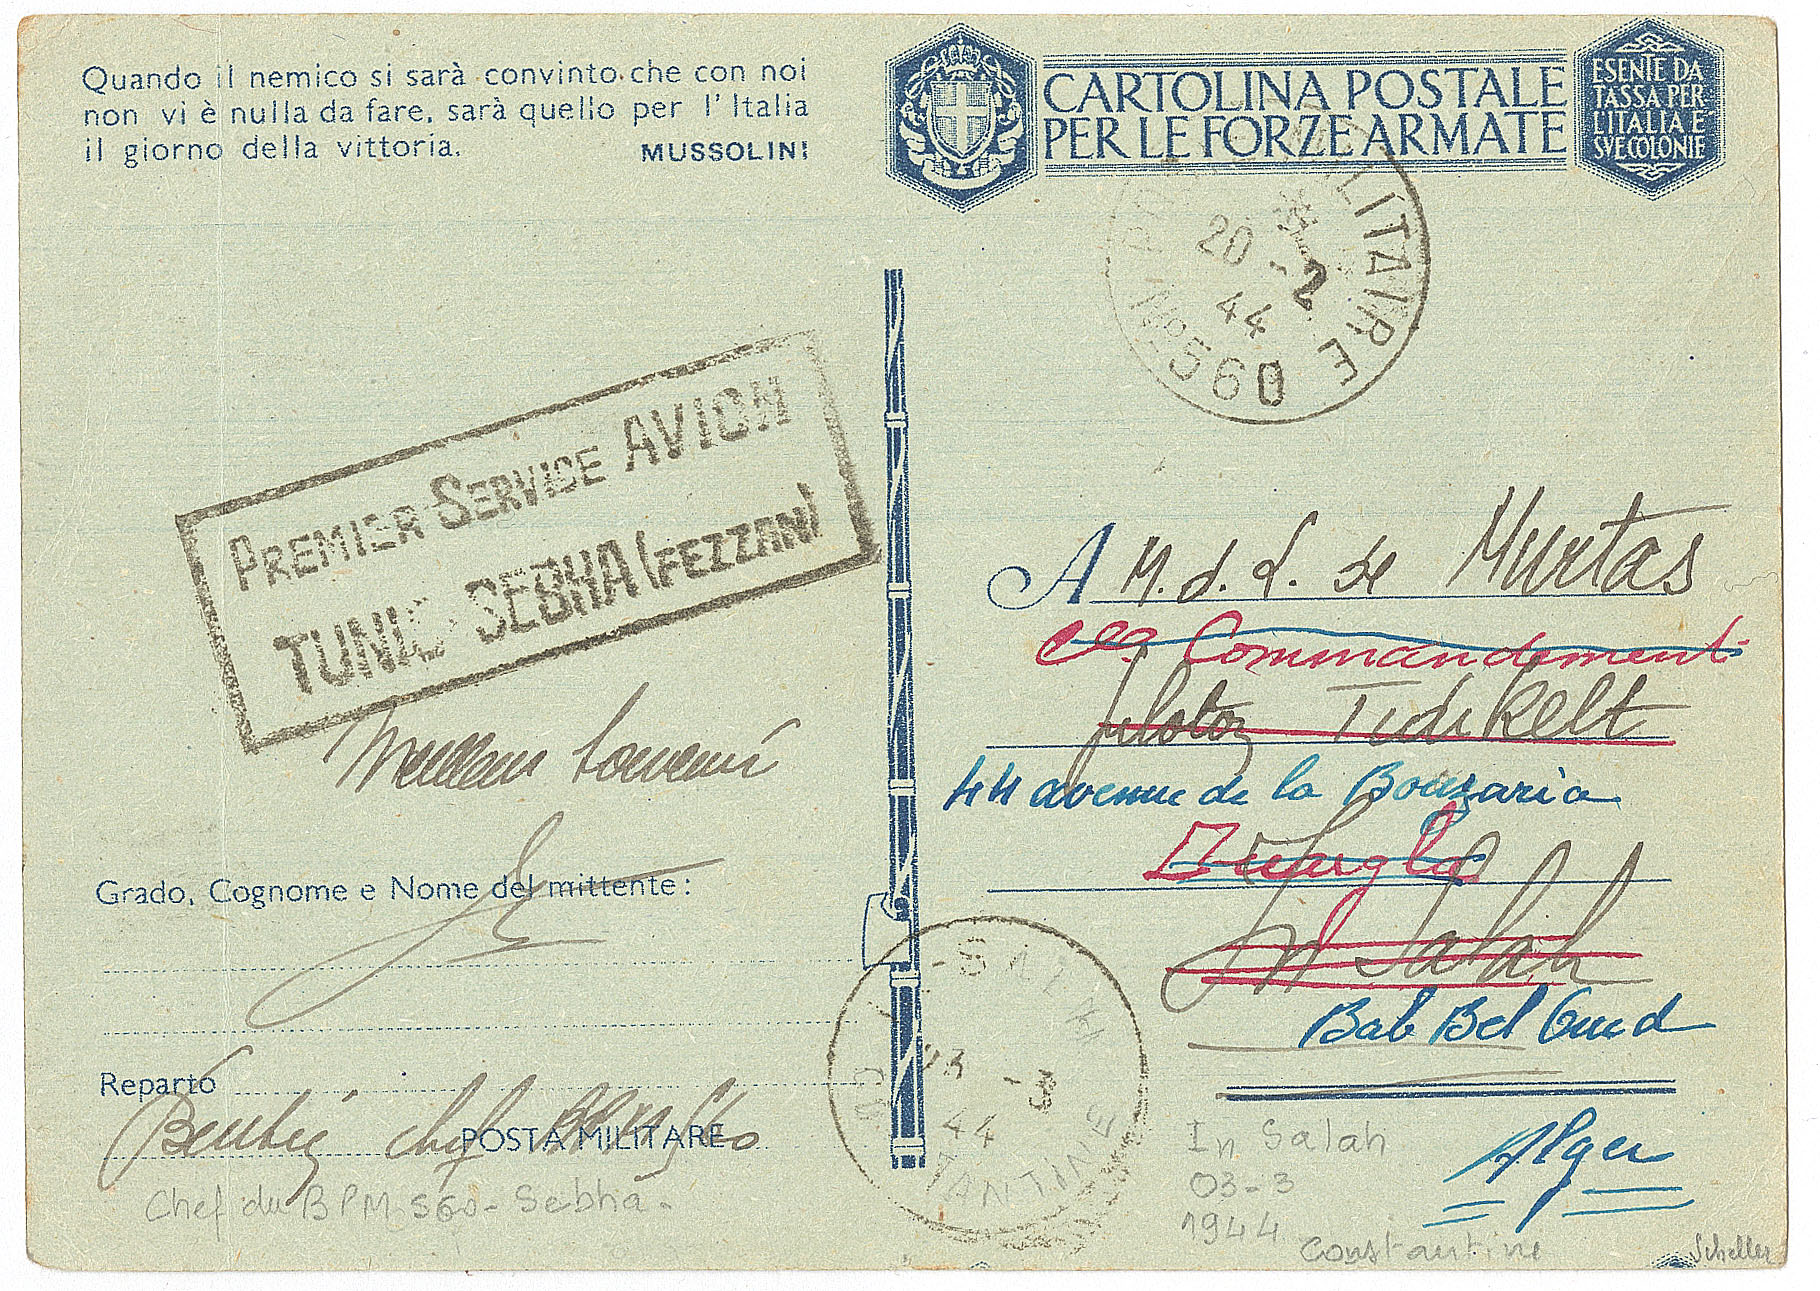 Quando il nemico si sarà convinto che con noi
non vi è nulla da fare, sarà quello per l'Italia
il giorno della vittoria. MUSSOLINI
CARTOLINA POSTALE
PER LE FORZE ARMATE
ESENTE DA
TASSA PER
L'ITALIA E
SVE COLONIE
POSTE MILITAIRE
20 -2
44
Nº 560
PREMIER SERVICE AVION
TUNIS SEBHA (FEZZAN)
A M. d. L. de Murtas
Cie Commandement
Tidikelt
44 avenue de la Bouzaria
Ouargla
In Salah
Bab Bel Oued
Alger
Grado, Cognome e Nome del mittente:
Reparto
chef BPM 560
POSTA MILITARE
Chef du BPM 560 - Sebha.
IN-SALAH
03 -3
44
CONSTANTINE
In Salah
03-3
1944
Constantine
Scheller